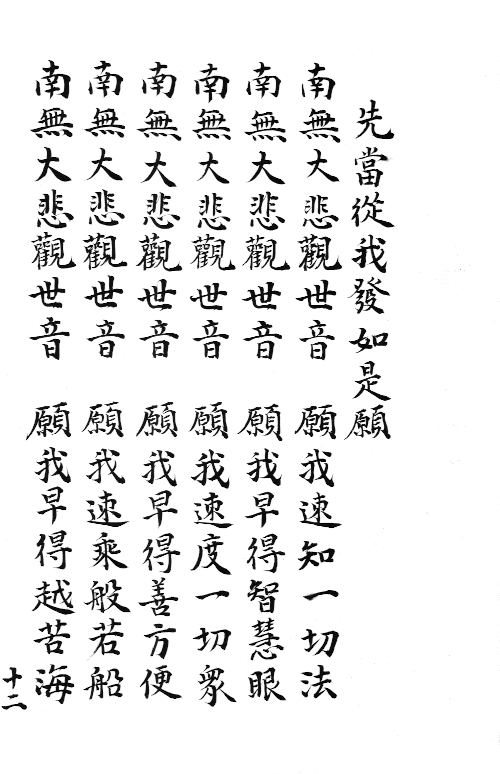 先當從我發如是願
南無大悲觀世音 願我速知一切法
南無大悲觀世音 願我早得智慧眼
南無大悲觀世音 願我速度一切眾
南無大悲觀世音 願我早得善方便
南無大悲觀世音 願我速乘般若船
南無大悲觀世音 願我早得越苦海
十二